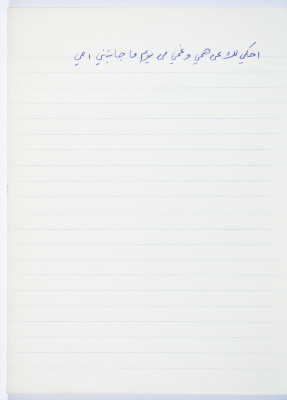 احكي لك عن همي وغمي من يوم ما جابتني امي